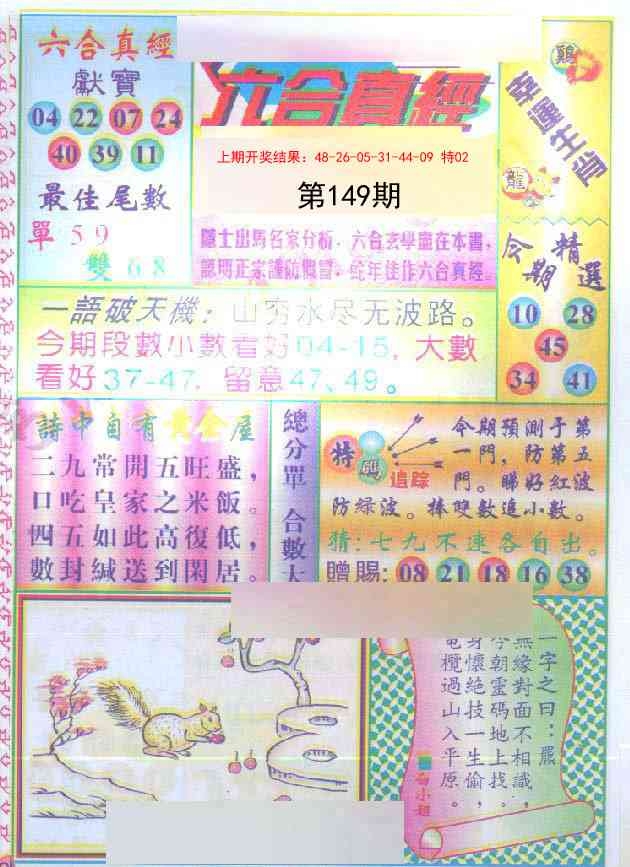 六合真經
獻寶
04 22 07 24
40 39 11
最佳尾數
單 5 9
雙 6 8
六合真經
上期开奖结果: 48-26-05-31-44-09 特02
第149期
隱士出馬名家分析,六合玄學盡在本書,
認明正宗謹防假冒,蛇年佳作六合真經。
鷄
幸運生肖
龍
今期精選
10 28
45
34 41
一語破天機:山穷水尽无波路。
今期段數小數看好04-15,大數
看好37-47,留意47、49。
詩中自有黃金屋
二九常開五旺盛,
日吃皇家之米飯。
四五如此高復低,
數封緘送到閑居。
總分單 合數大
特碼追踪
今期預測于第
一門,防第五
門。睇好紅波
防緑波。捧雙數追小數。
猜:七九不連各自出。
贈賜: 08 21 18 16 38
一字之曰:羆
無緣對面不相識,
今朝靈碼地上找。
身懷絕技一生偷,
電欖過山入平原。
白小姐